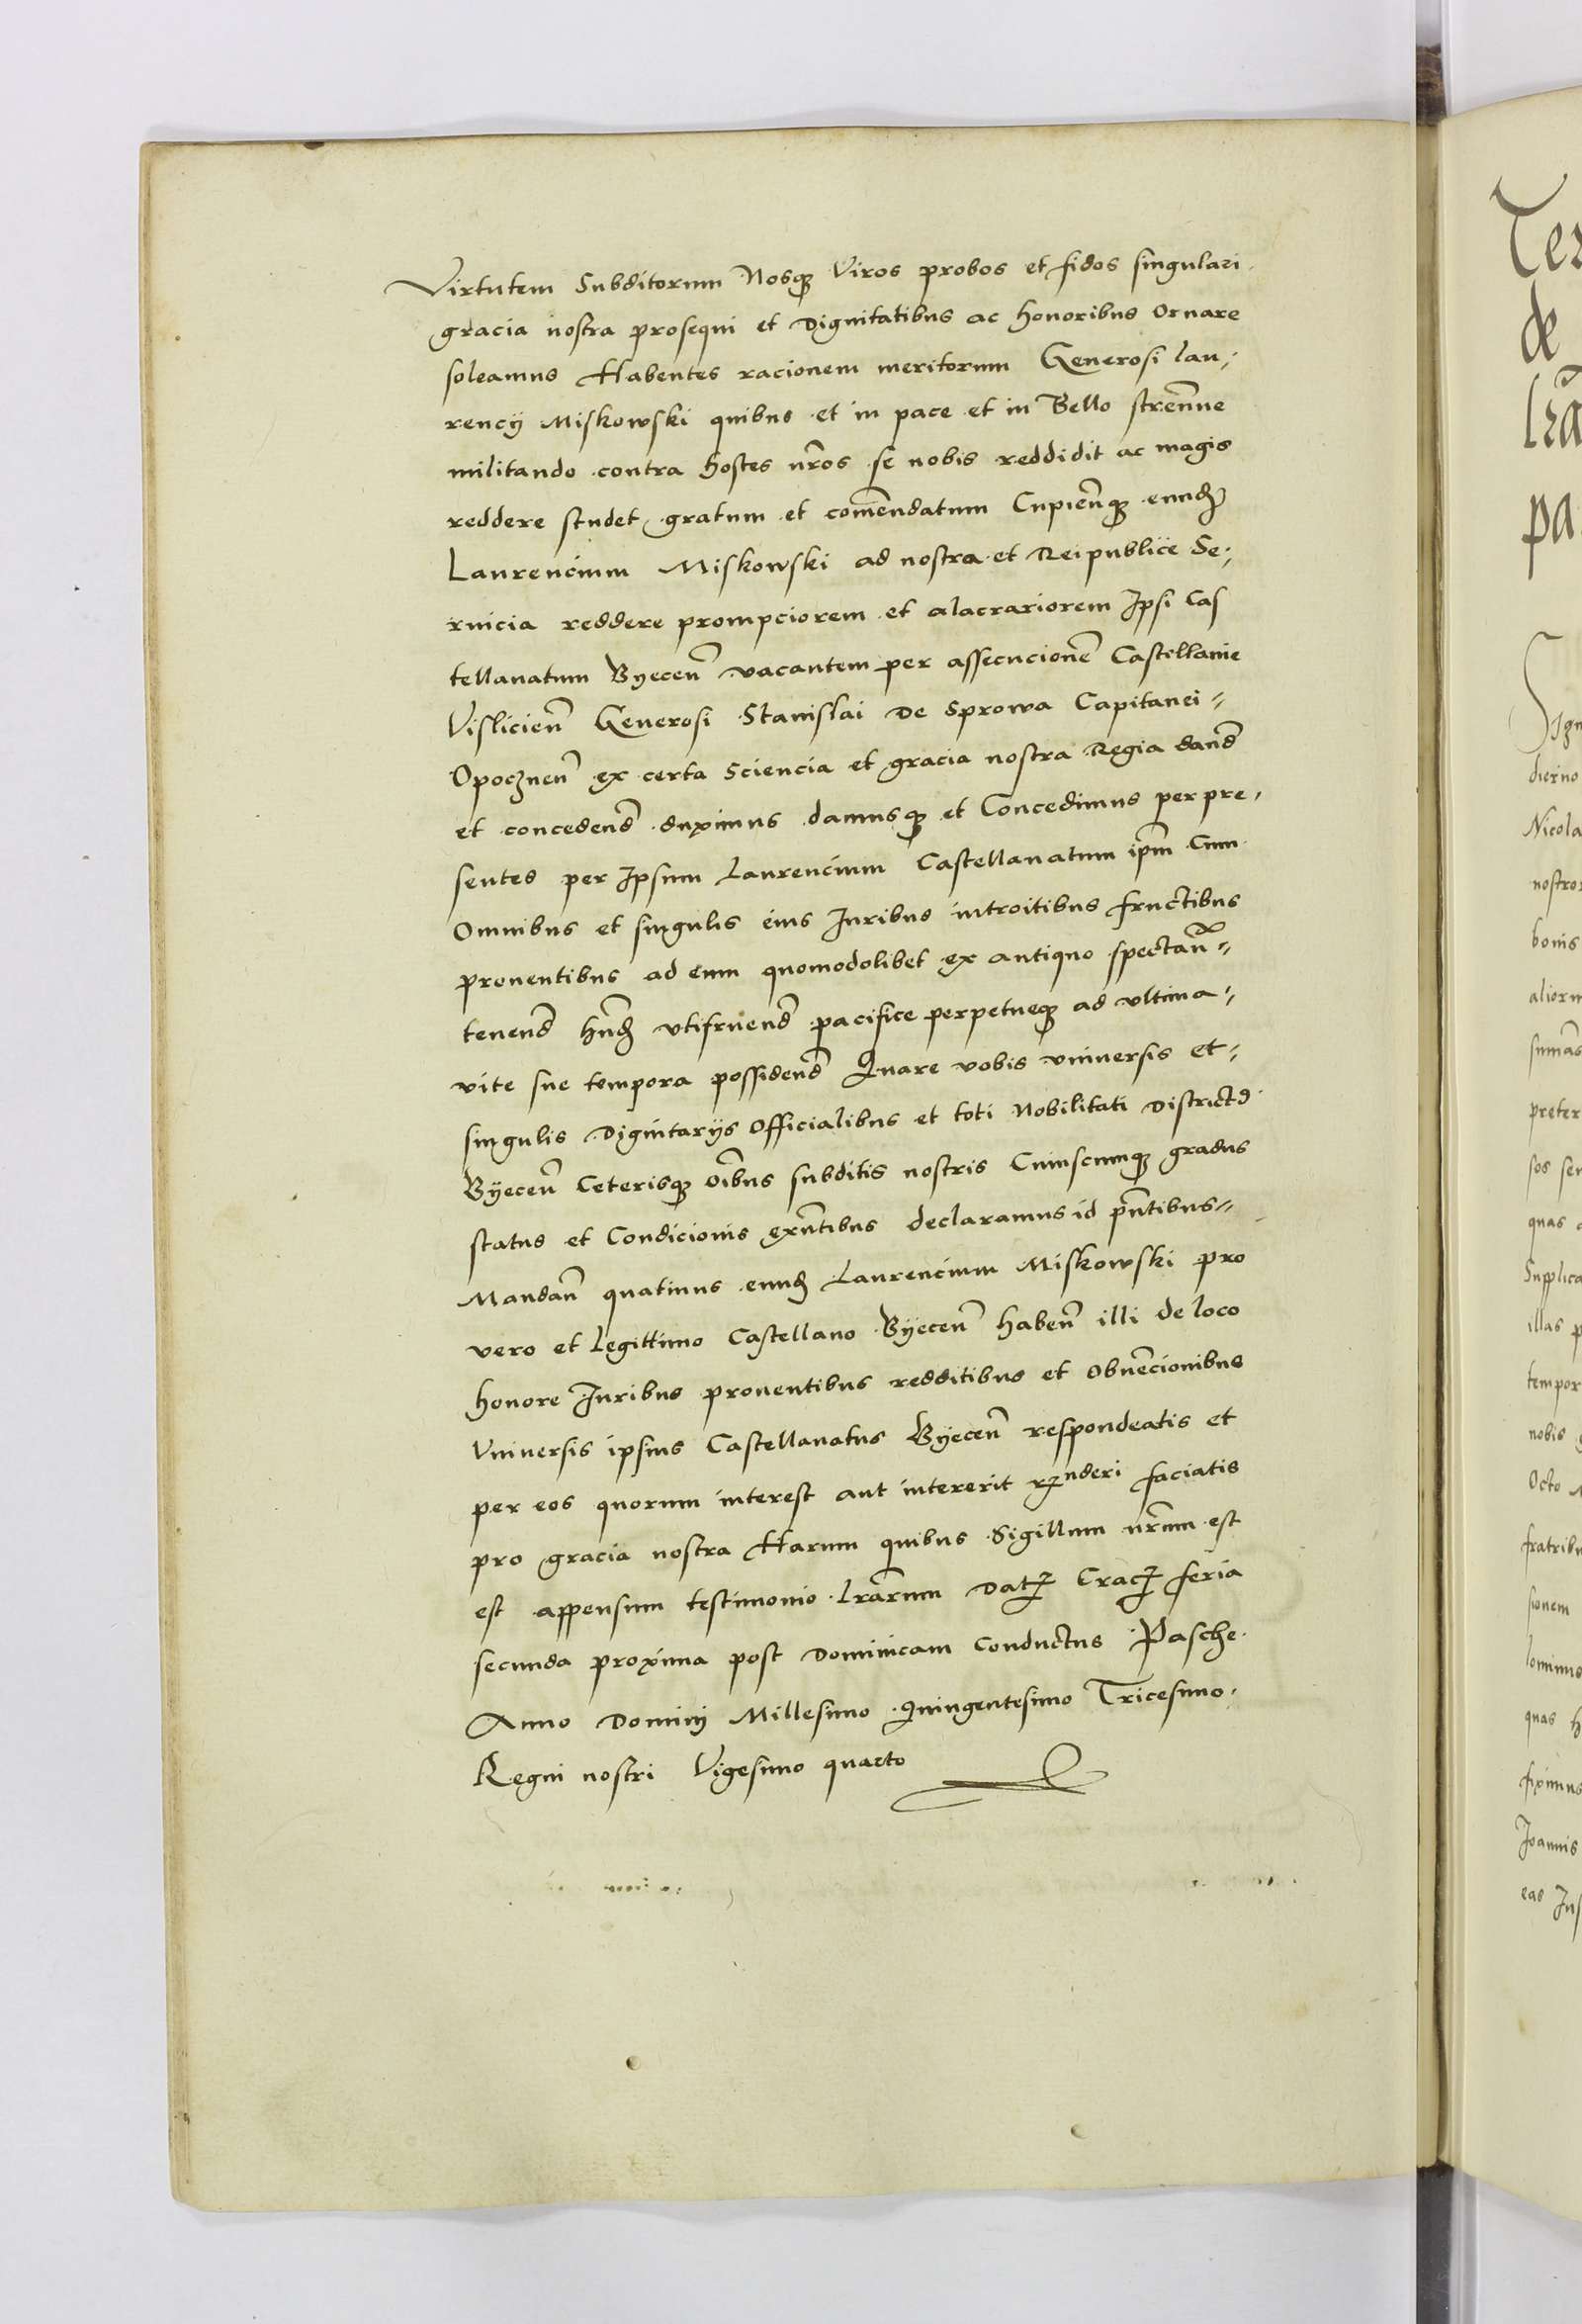 Virtutem Subditorum Nosqȝ Viros probos et fidos singulari
gracia nostra prosequi et Dignitatibus ac honoribus Ornare
soleamus Habentes racionem meritorum Generosi lau-
rencij Miskowski quibus et in pace et in Bello stren̄ue
militando contra hostes nr̄os se nobis reddidit ac magis
reddere studet gratum et com̄endatum Cupien̄qȝ eundȝ
Laurencium Miskowski ad nostra et Reipublice Se-
ruicia reddere prompciorem et alacrariorem Ipsi Cas
tellanatum Byecen̄ vacantem per assecucionē Castellanie
Visliciēn Generosi Stanislai De Sprowa Capitanei-
Opocznen̄ ex certa Sciencia et gracia nostra Regia dand̄
et concedend̄ duximus damusqȝ et Concedimus per pre-
sentes per Ipsum Laurencium Castellanatum ip̄m Cum
Omnibus et singulis eius Iuribus introitibus fructibus
prouentibus ad eum quomodolibet ex antiquo spectan̄-
tenend̄ hn̄dȝ vtifruend̄ pacifice perpetueqȝ ad vltima-
vite sue tempora possidend̄ Quare vobis vniuersis et-
singulis Dignitarijs Officialibus et toti Nobilitati Districtꝰ
Byecen̄ Ceterisqȝ oīb̄us subditis nostris Cuiuscumqȝ gradus
status et Condicionis exn̄tibus declaramus id pn̄tibus-
Mandan̄ quatinus eundȝ Laurencium Miskowski pro
vero et legittimo Castellano Byecen̄ haben̄ illi de loco
honore Iuribus prouentibus redditibus et Obuēcionibus
Vniuersis ipsius Castellanatus Byecen̄ respondeatis et
per eos quorum interest aut intererit rn̄deri faciatis
pro gracia nostra Harum quibus Sigillum nr̄um est
est appensum testimonio lrārum Datȝ Cracȝ feria
secunda proxima post Dominicam Conductus Pasche
Anno Dominj Millesimo Quingentesimo Tricesimo
Regni nostri Vigesimo quarto
Ter
de
lrā
pa
Sign
dierno
Nicola
nostro
bonis
aliorum
sum̄as
preter
sos ser
quas
Supplica
illas p
tempor
nobis
Octo
fratribu
sionem
lominus
quas h
fiximus
Ioannis
eas Ius